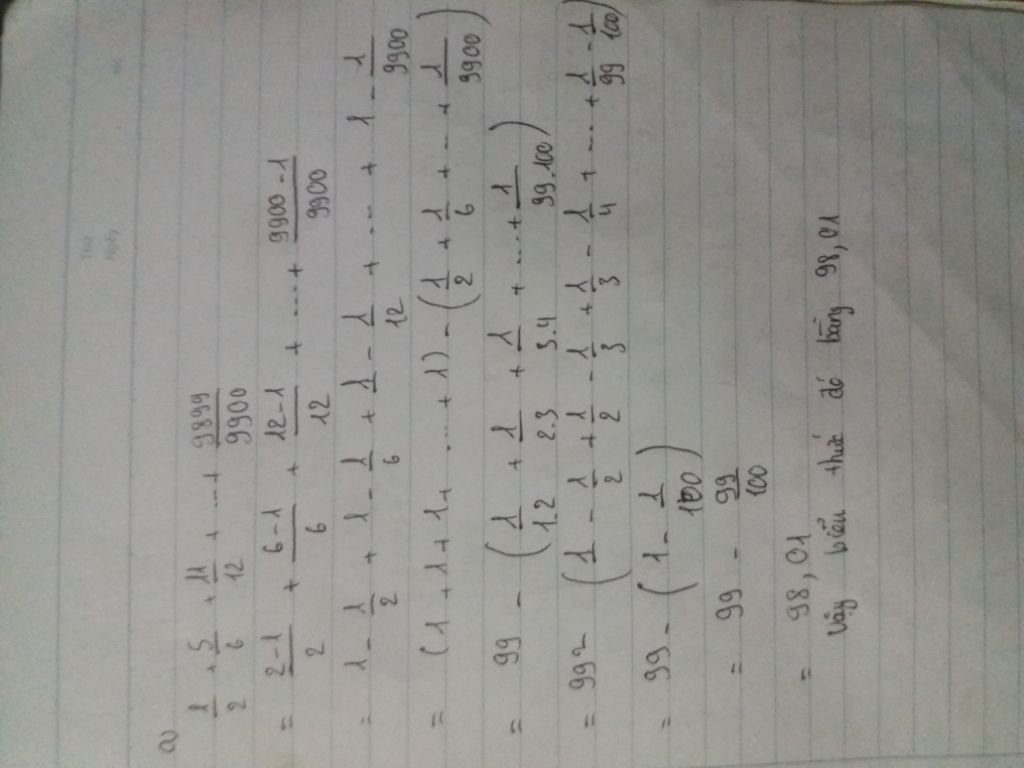 Thứ
Ngày
No.
a)
1/2 + 5/6 + 11/12 + ... + 9899/9900
= 2-1/2 + 6-1/6 + 12-1/12 + ..... + 9900-1/9900
= 1 - 1/2 + 1 - 1/6 + 1 - 1/12 + ... + 1 - 1/9900
= (1 + 1 + 1 + .... + 1) - (1/2 + 1/6 + ... + 1/9900)
= 99 - (1/1.2 + 1/2.3 + 1/3.4 + ... + 1/99.100)
= 99 - (1 - 1/2 + 1/2 - 1/3 + 1/3 - 1/4 + ... + 1/99 - 1/100)
= 99 - (1 - 1/100)
= 99 - 99/100
= 98,01
Vậy biểu thức đó bằng 98,01